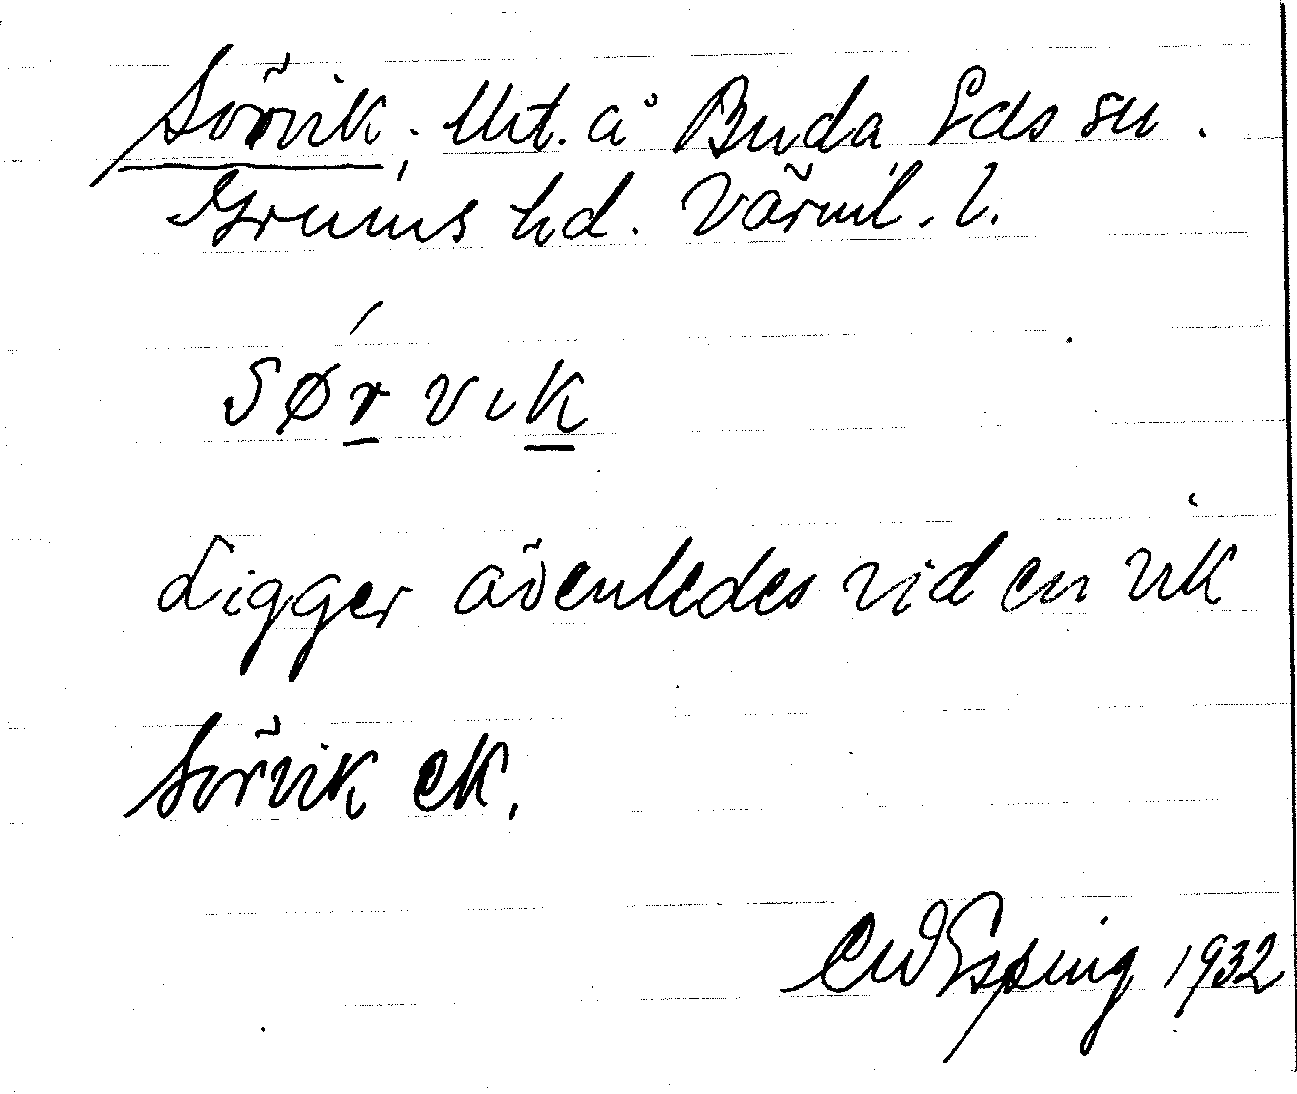 Sörvik, Utt. å Buda, Eds sn.
Grums hd. Värml. l.
Sørvik
Ligger ävenledes vid en vik
Sörvik ek.
CWEsping 1932